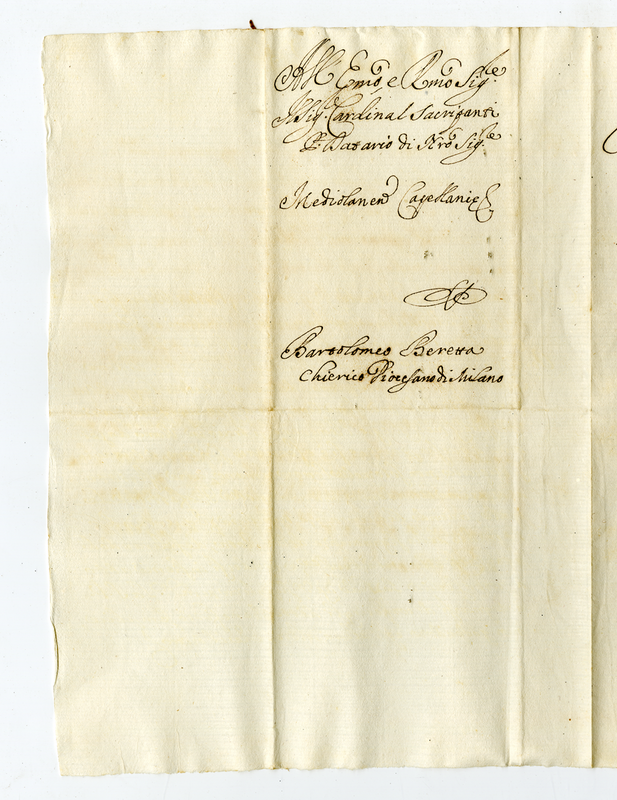 All' Emõ, e Rmõ Sig.re
Il Sig.r Cardinal Sacripanti
P. Datario di Nrõ Sig.re
Mediolanen Capellaniæ
Bartolomeo Beretta
Chierico Diocesano di Milano